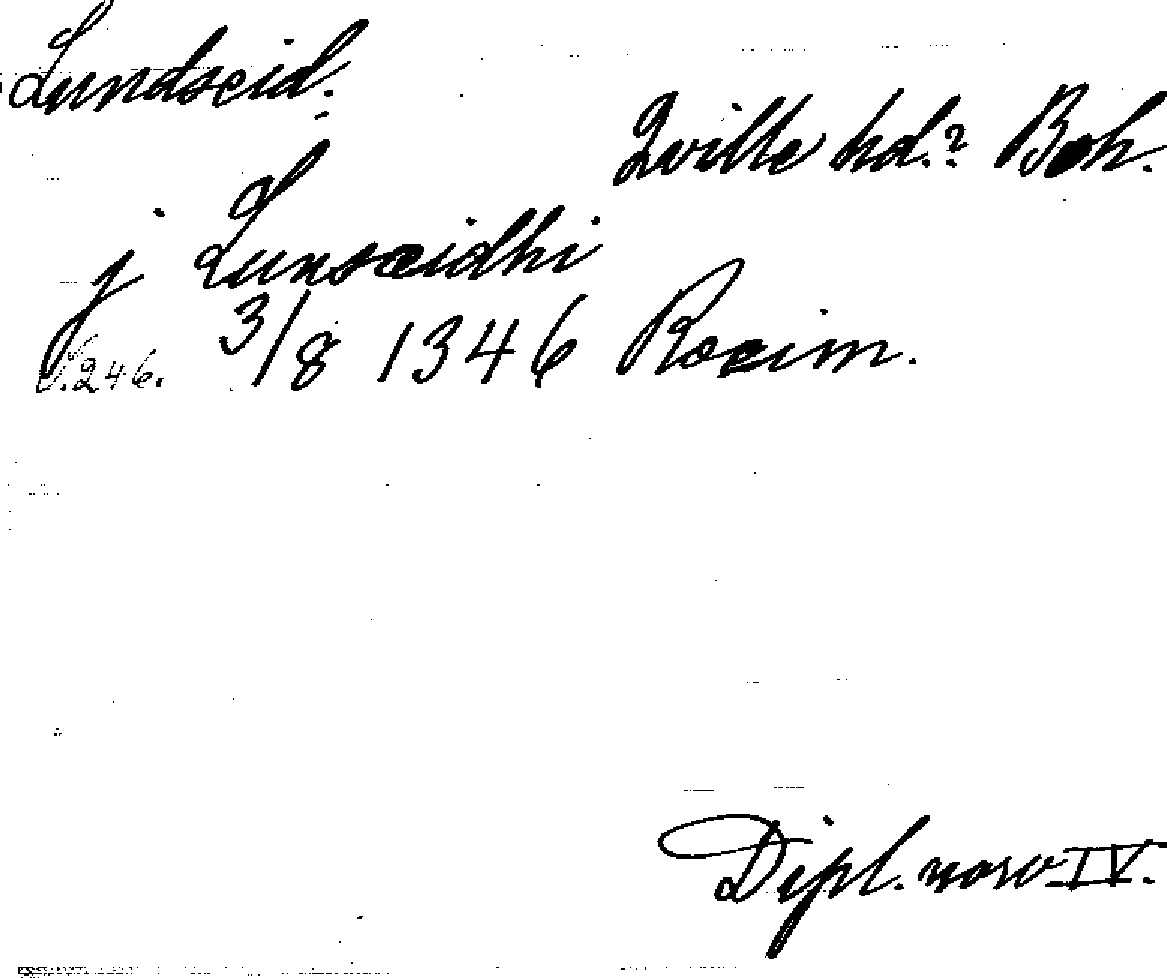 Lundseid.
Qville hd.? Boh.
j Lunseidhi
S. 246. 3/8 1346 Roeim.
Dipl. norv IV.